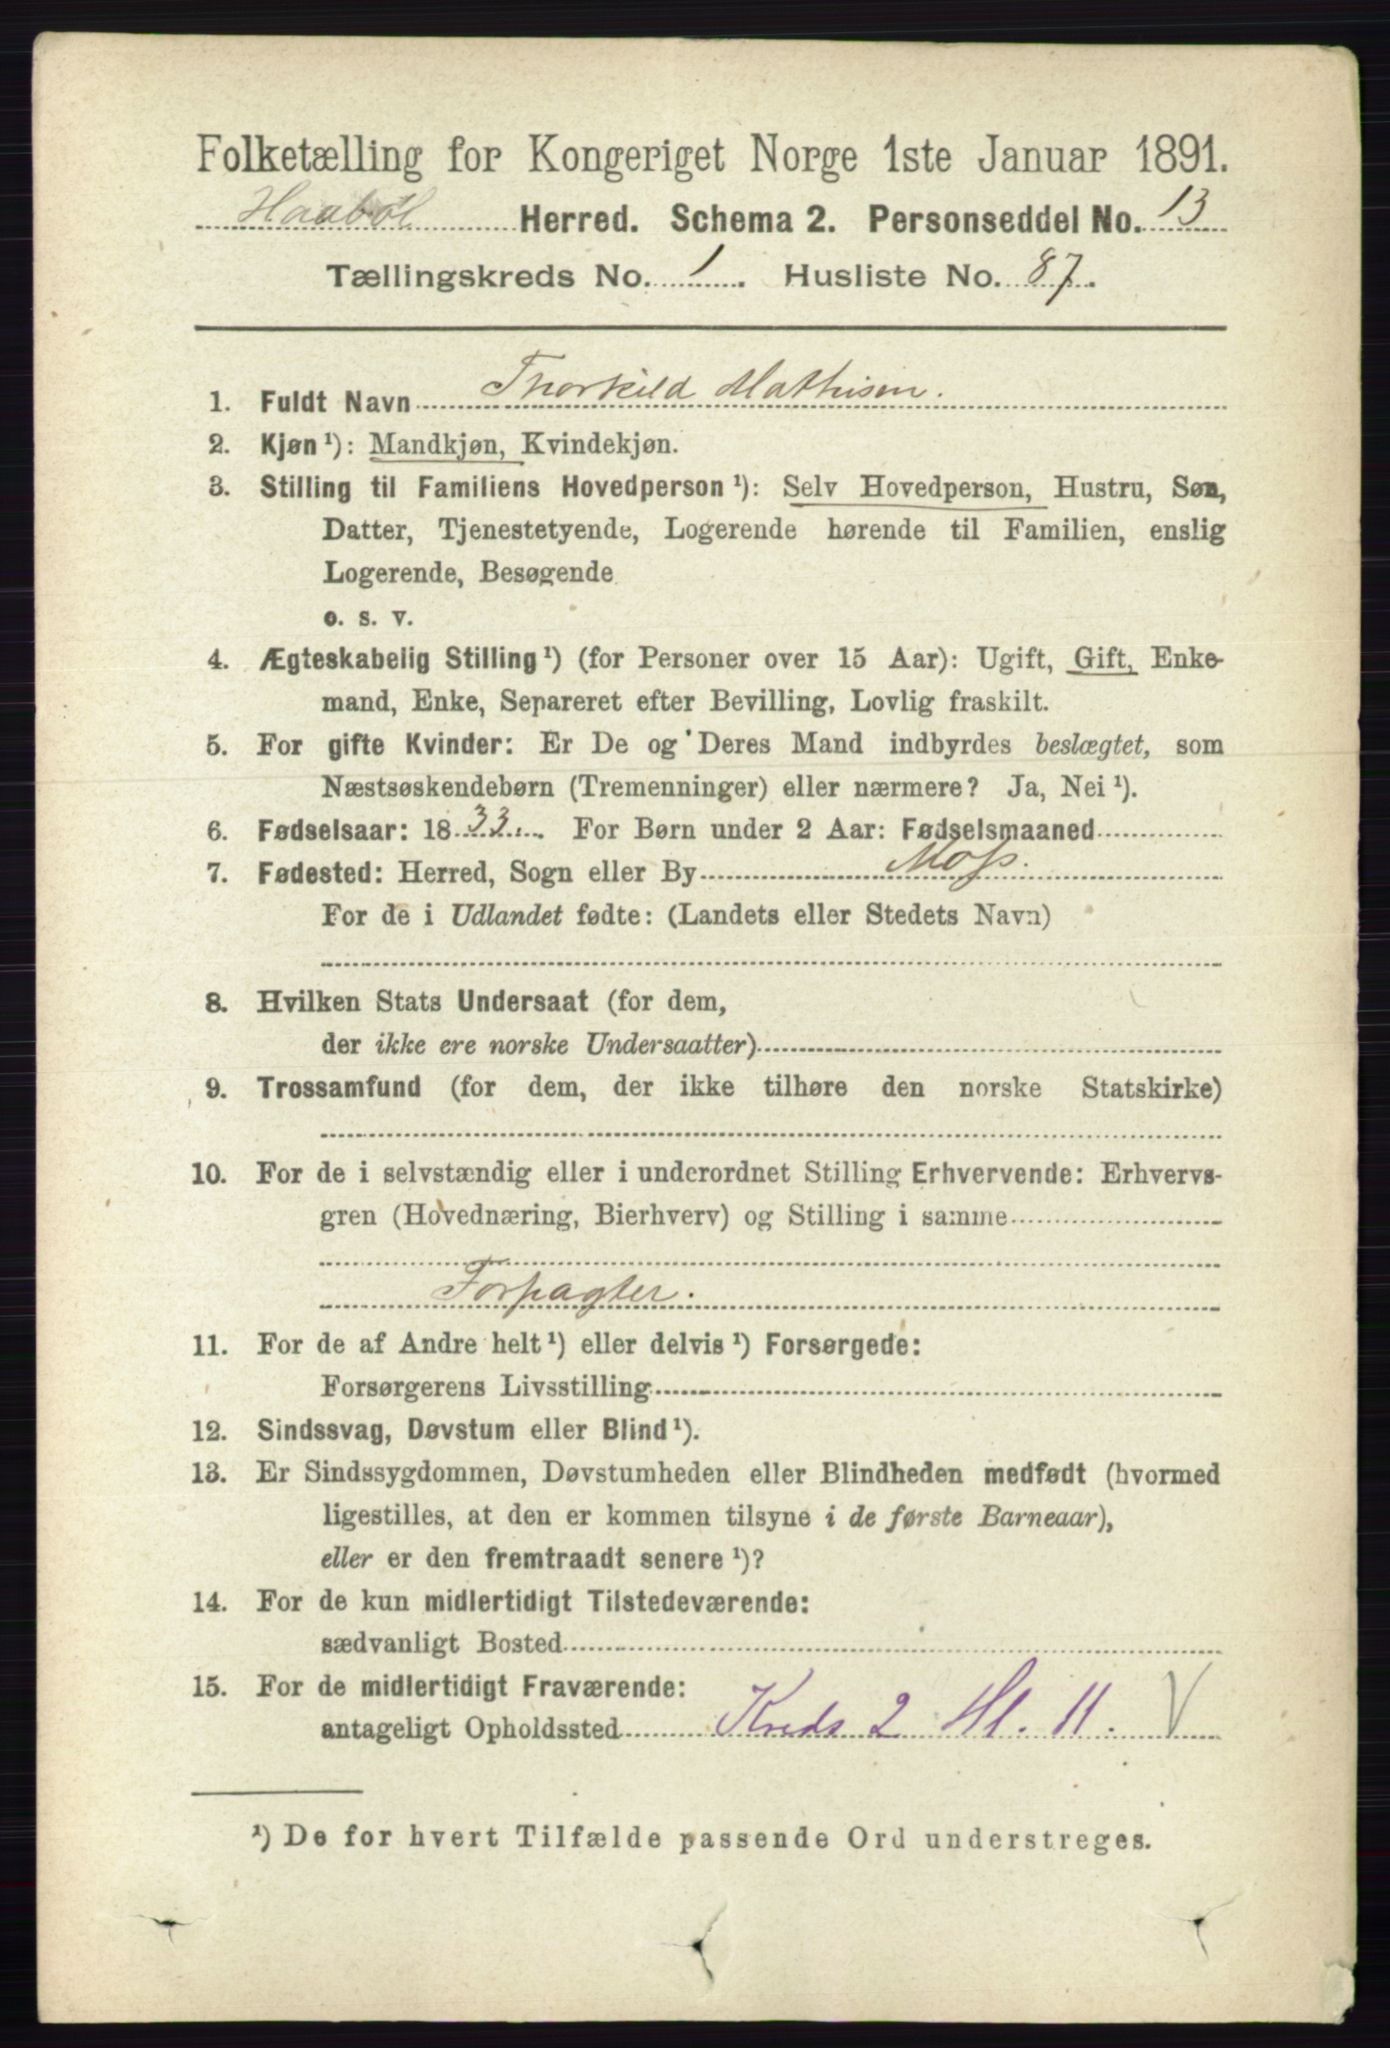 Folketælling for Kongeriget Norge 1ste Januar 1891.
Haabøl Herred. Schema 2. Personseddel No. 13
Tællingskreds No. 1. Husliste No. 87.
1. Fuldt Navn Thorkild Mathisen.
2. Kjøn ¹): Mandkjøn, Kvindekjøn.
3. Stilling til Familiens Hovedperson ¹): Selv Hovedperson, Hustru, Søn,
Datter, Tjenestetyende, Logerende hørende til Familien, enslig
Logerende, Besøgende
o. s. v.
4. Ægteskabelig Stilling ¹) (for Personer over 15 Aar): Ugift, Gift, Enke-
mand, Enke, Separeret efter Bevilling, Lovlig fraskilt.
5. For gifte Kvinder: Er De og Deres Mand indbyrdes beslægtet, som
Næstsøskendebørn (Tremenninger) eller nærmere? Ja, Nei ¹).
6. Fødselsaar: 1833. For Børn under 2 Aar: Fødselsmaaned
7. Fødested: Herred, Sogn eller By Moss.
For de i Udlandet fødte: (Landets eller Stedets Navn)
8. Hvilken Stats Undersaat (for dem,
der ikke ere norske Undersaatter)
9. Trossamfund (for dem, der ikke tilhøre den norske Statskirke)
10. For de i selvstændig eller i underordnet Stilling Erhvervende: Erhvervs-
gren (Hovednæring, Bierhverv) og Stilling i samme
Forpagter.
11. For de af Andre helt ¹) eller delvis ¹) Forsørgede:
Forsørgerens Livsstilling
12. Sindssvag, Døvstum eller Blind ¹).
13. Er Sindssygdommen, Døvstumheden eller Blindheden medfødt (hvormed
ligestilles, at den er kommen tilsyne i de første Barneaar),
eller er den fremtraadt senere ¹)?
14. For de kun midlertidigt Tilstedeværende:
sædvanligt Bosted
15. For de midlertidigt Fraværende:
antageligt Opholdssted Kreds 2 Hl. 11. V
¹) De for hvert Tilfælde passende Ord understreges.